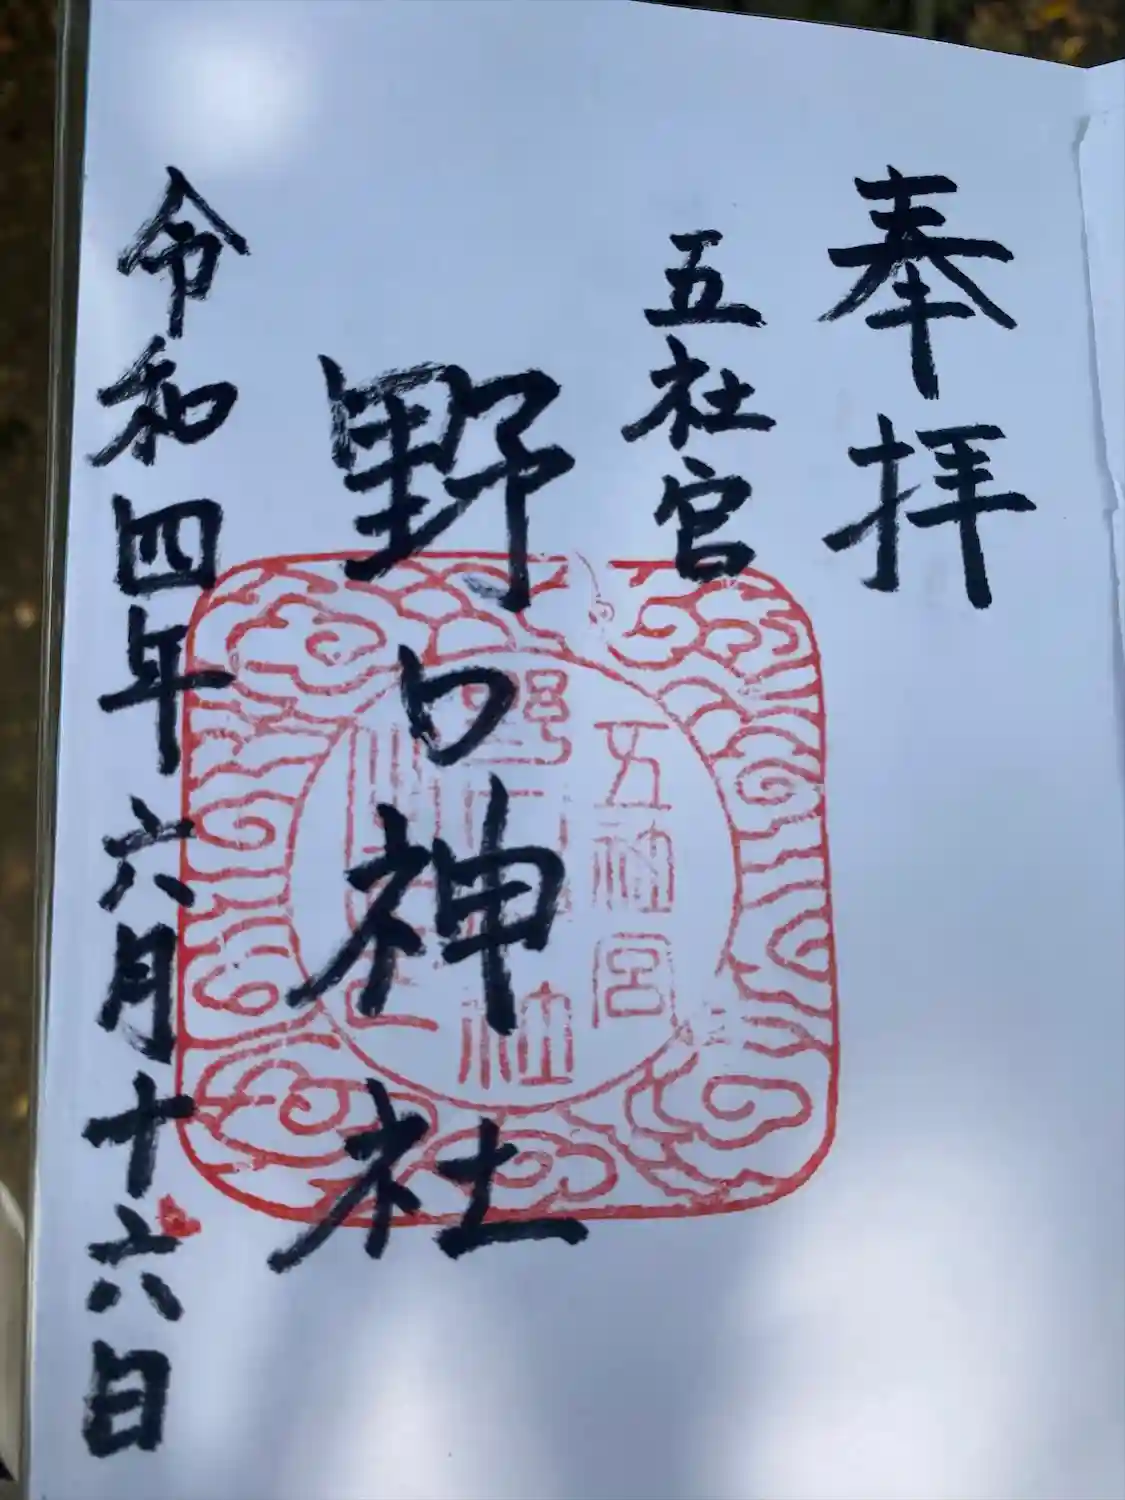 奉拝
五社宮
野口神社
令和四年六月十六日
五社宮
野口神社